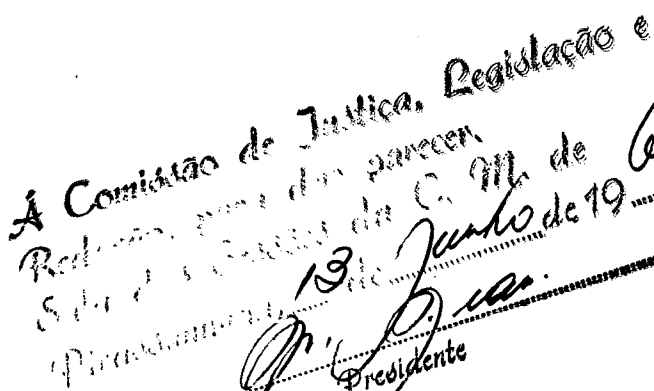 Á Comissão de Justiça, Legislação e
Redação, para dar parecer.
Sala das Sessões da C. M. de
13 de Junho de 19
Presidente